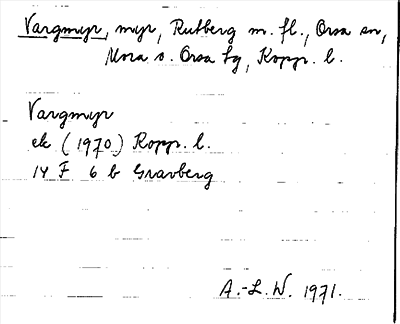 Vargmyr, myr, Rutberg m. fl., Orsa sn,
Mora o. Orsa tg, Kopp. l.
Vargmyr
ek (1970) Kopp. l.
14 F 6 b Gravberg
A.-L.W. 1971.